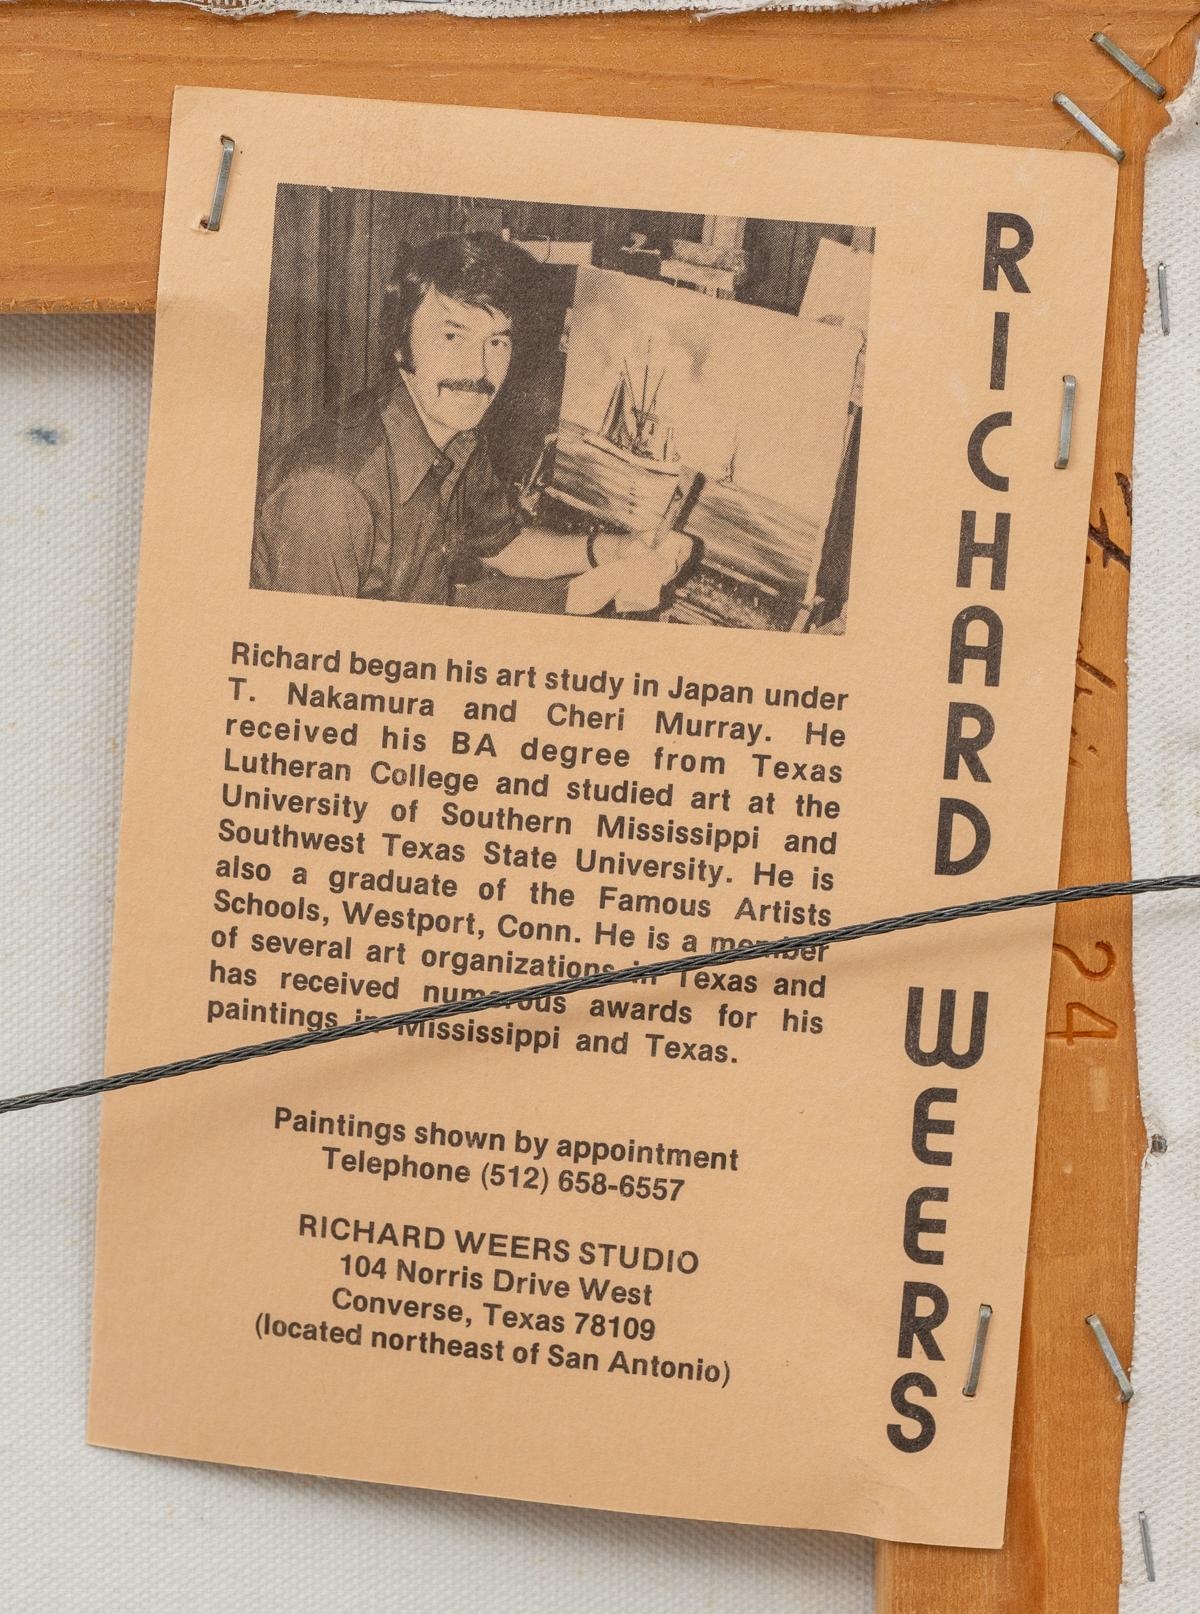 RICHARD WEERS
Richard began his art study in Japan under
T. Nakamura and Cheri Murray. He
received his BA degree from Texas
Lutheran College and studied art at the
University of Southern Mississippi and
Southwest Texas State University. He is
also a graduate of the Famous Artists
Schools, Westport, Conn. He is a member
of several art organizations in Texas and
has received numerous awards for his
paintings in Mississippi and Texas.
Paintings shown by appointment
Telephone (512) 658-6557
RICHARD WEERS STUDIO
104 Norris Drive West
Converse, Texas 78109
(located northeast of San Antonio)
24